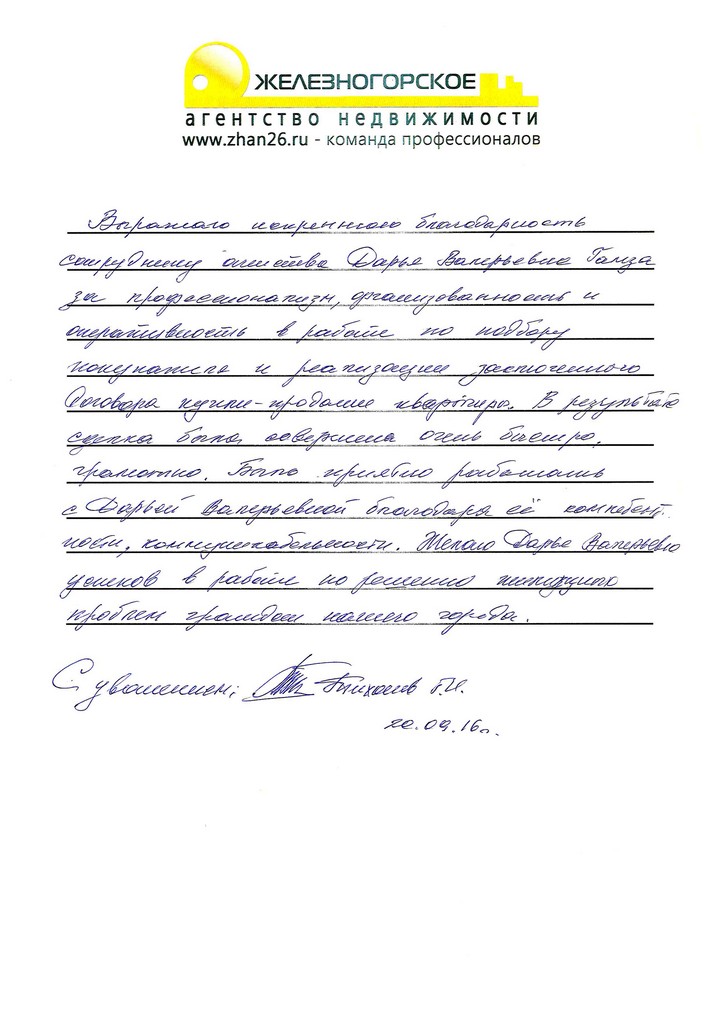 ЖЕЛЕЗНОГОРСКОЕ
агентство недвижимости
www.zhan26.ru - команда профессионалов
Выражаю искреннюю благодарность
сотруднику агентства Дарье Валерьевне Гамза
за профессионализм, организованность и
оперативность в работе по подбору
покупателя и реализации заключенного
Договора купли-продажи квартиры. В результате
сделка была совершена очень быстро,
грамотно. Было приятно работать
с Дарьей Валерьевной благодаря её компетент-
ности, коммуникабельности. Желаю Дарье Валерьевне
успехов в работе по решению жилищных
проблем граждан нашего города.
С уважением; Г.И.
20.09.16г.